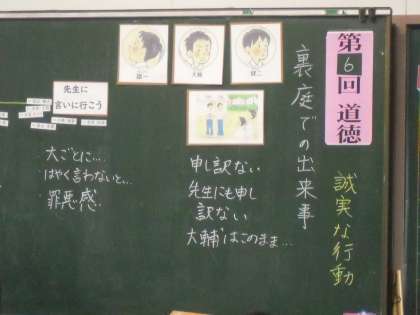 第6回 道徳
誠実な行動
裏庭での出来事
健二
大輔
雄一
申し訳ない
先生にも申し
訳ない
大輔はこのまま…
先生に
言いに行こう
大ごとに…
はやく言わないと…
罪悪感